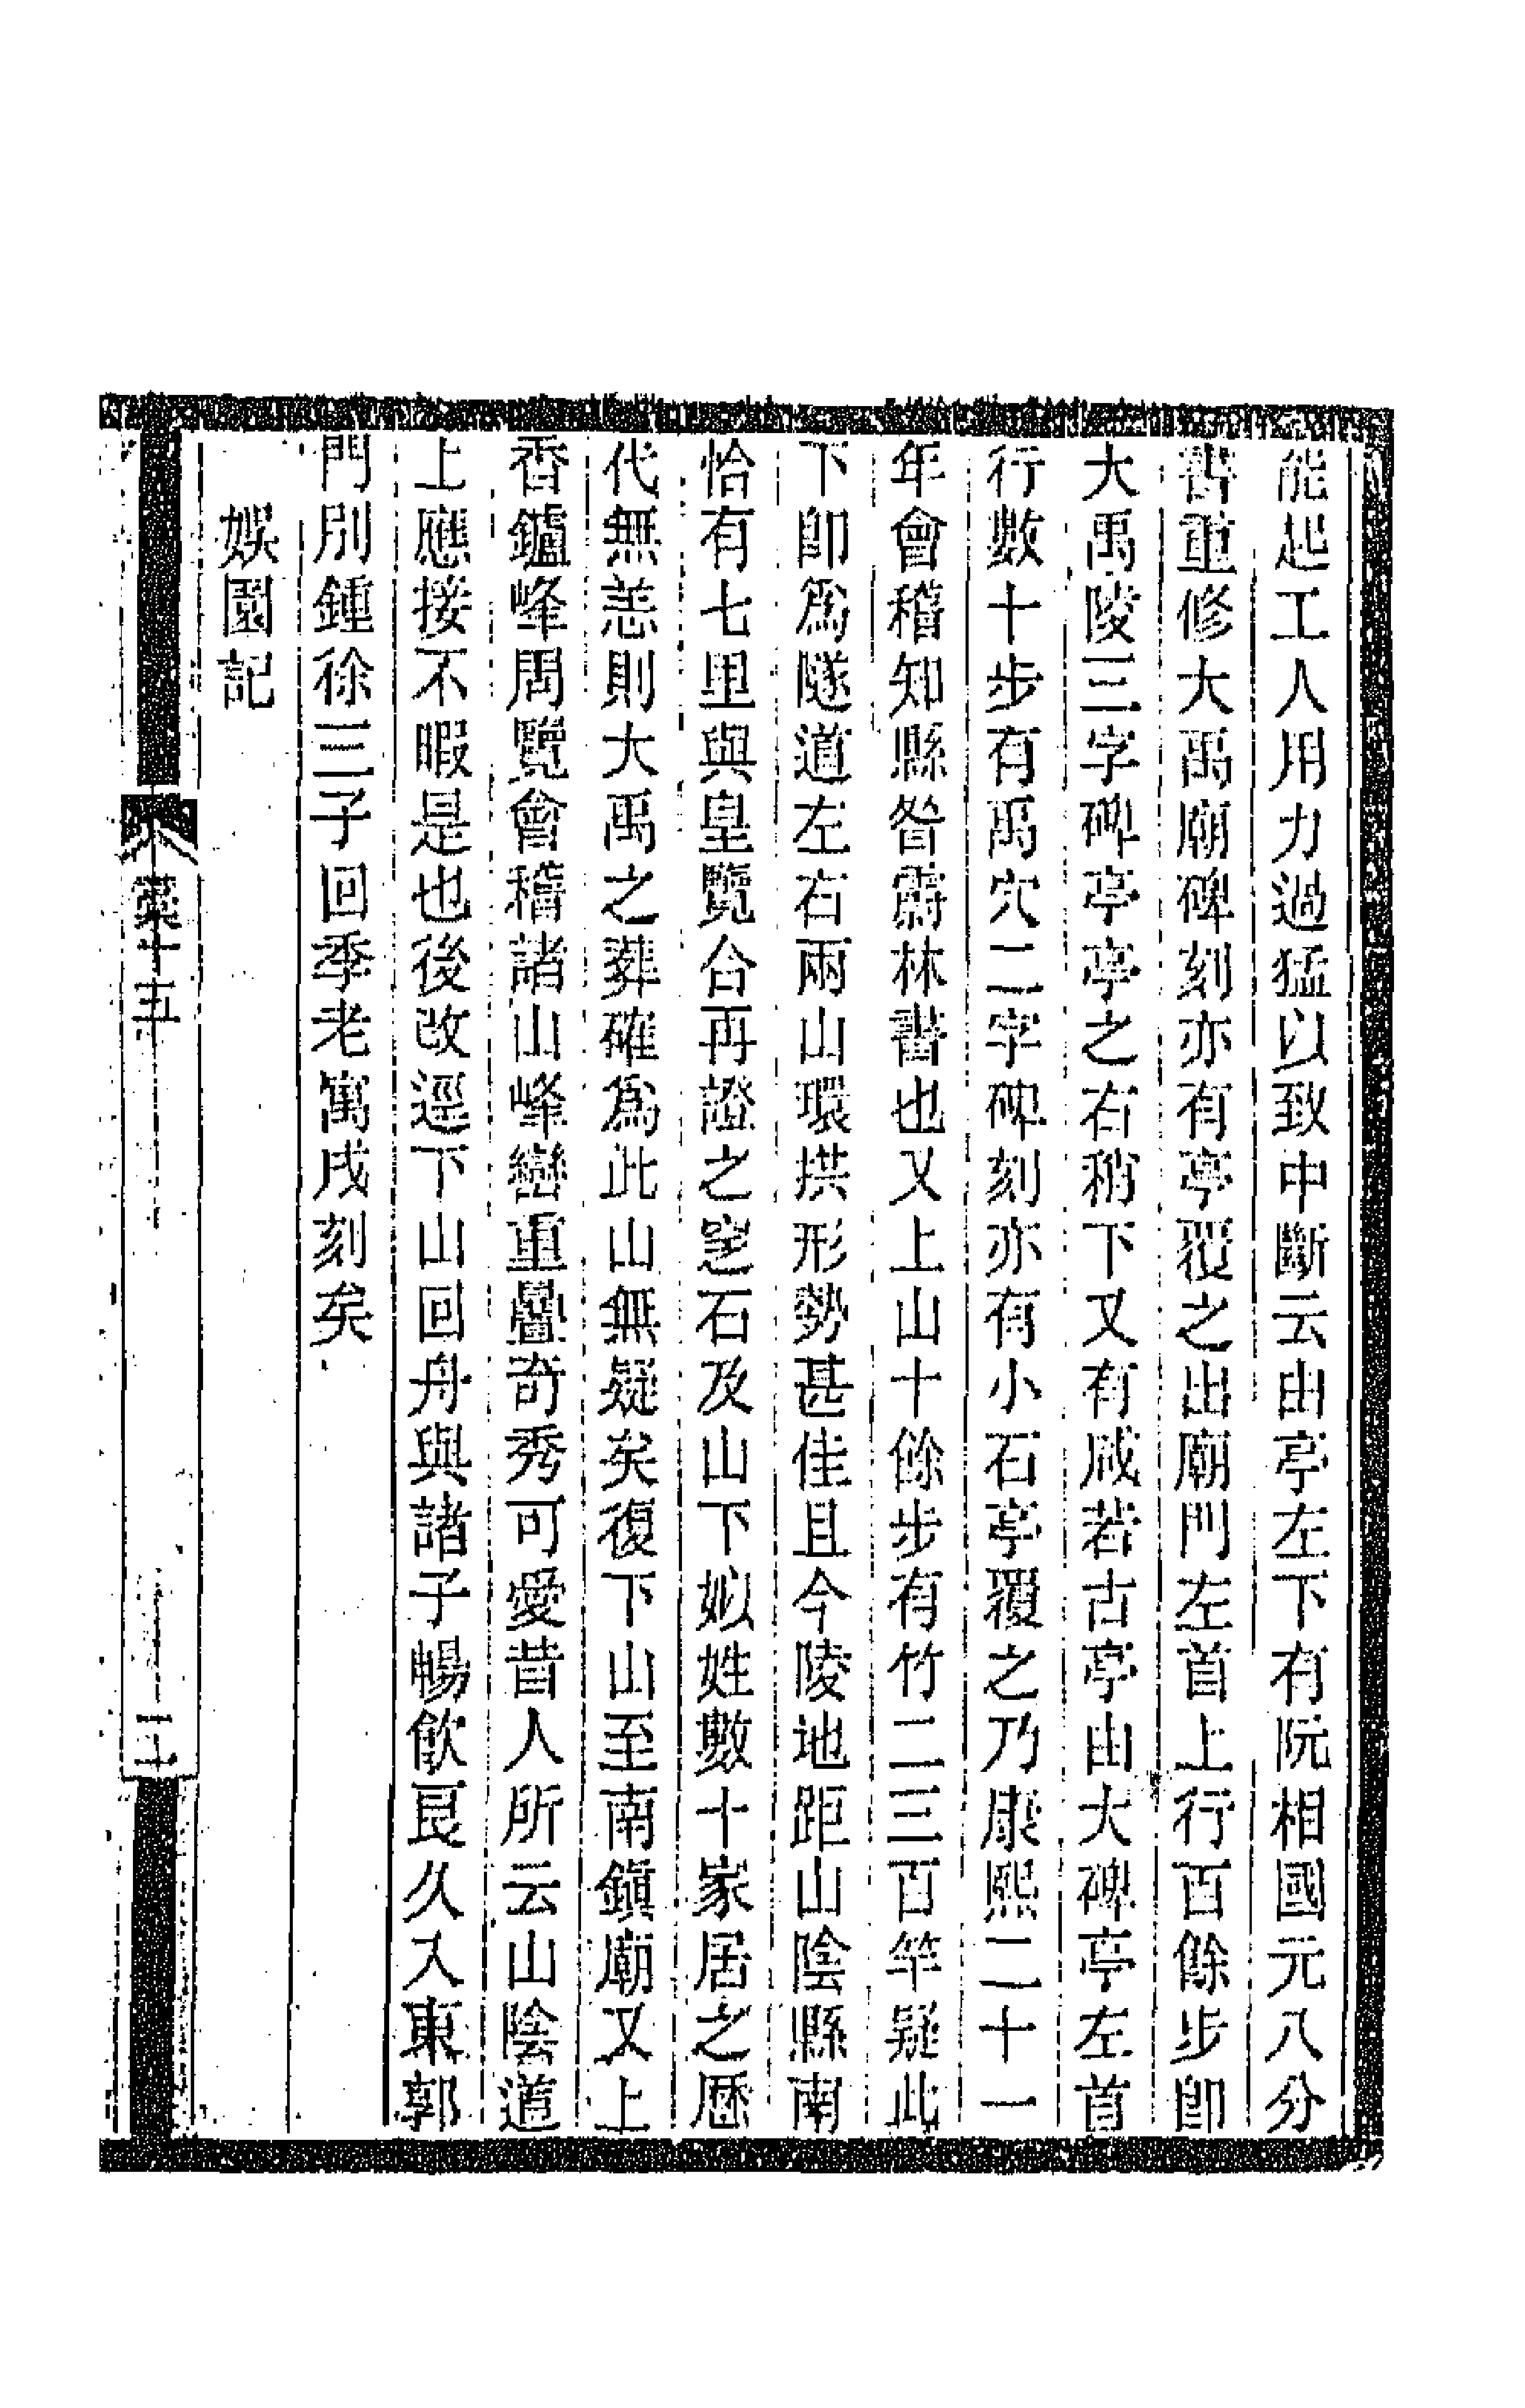 能起工人用力過猛以致中斷云由亭左下有阮相國元八分
書重修大禹廟碑刻亦有亭覆之出廟門左首上行百餘步卽
大禹陵三字碑亭亭之右稍下又有咸若古亭由大碑亭左首
行數十步有禹穴二字碑刻亦有小石亭覆之乃康熙二十一
年會稽知縣昝霨林書也又上山十餘步有竹二三百竿疑此
下卽爲隧道左右兩山環拱形勢甚佳且今陵地距山陰縣南
恰有七里與皇覽合再證之窆石及山下姒姓數十家居之歷
代無恙則大禹之葬確爲此山無疑矣復下山至南鎭廟又上
香鑪峰周覽會稽諸山峰巒重疊奇秀可愛昔人所云山陰道
上應接不暇是也後改逕下山回舟與諸子暢飮良久入東郭
門別鍾徐三子回季老寓戌刻矣
娛園記
槀十五
二十